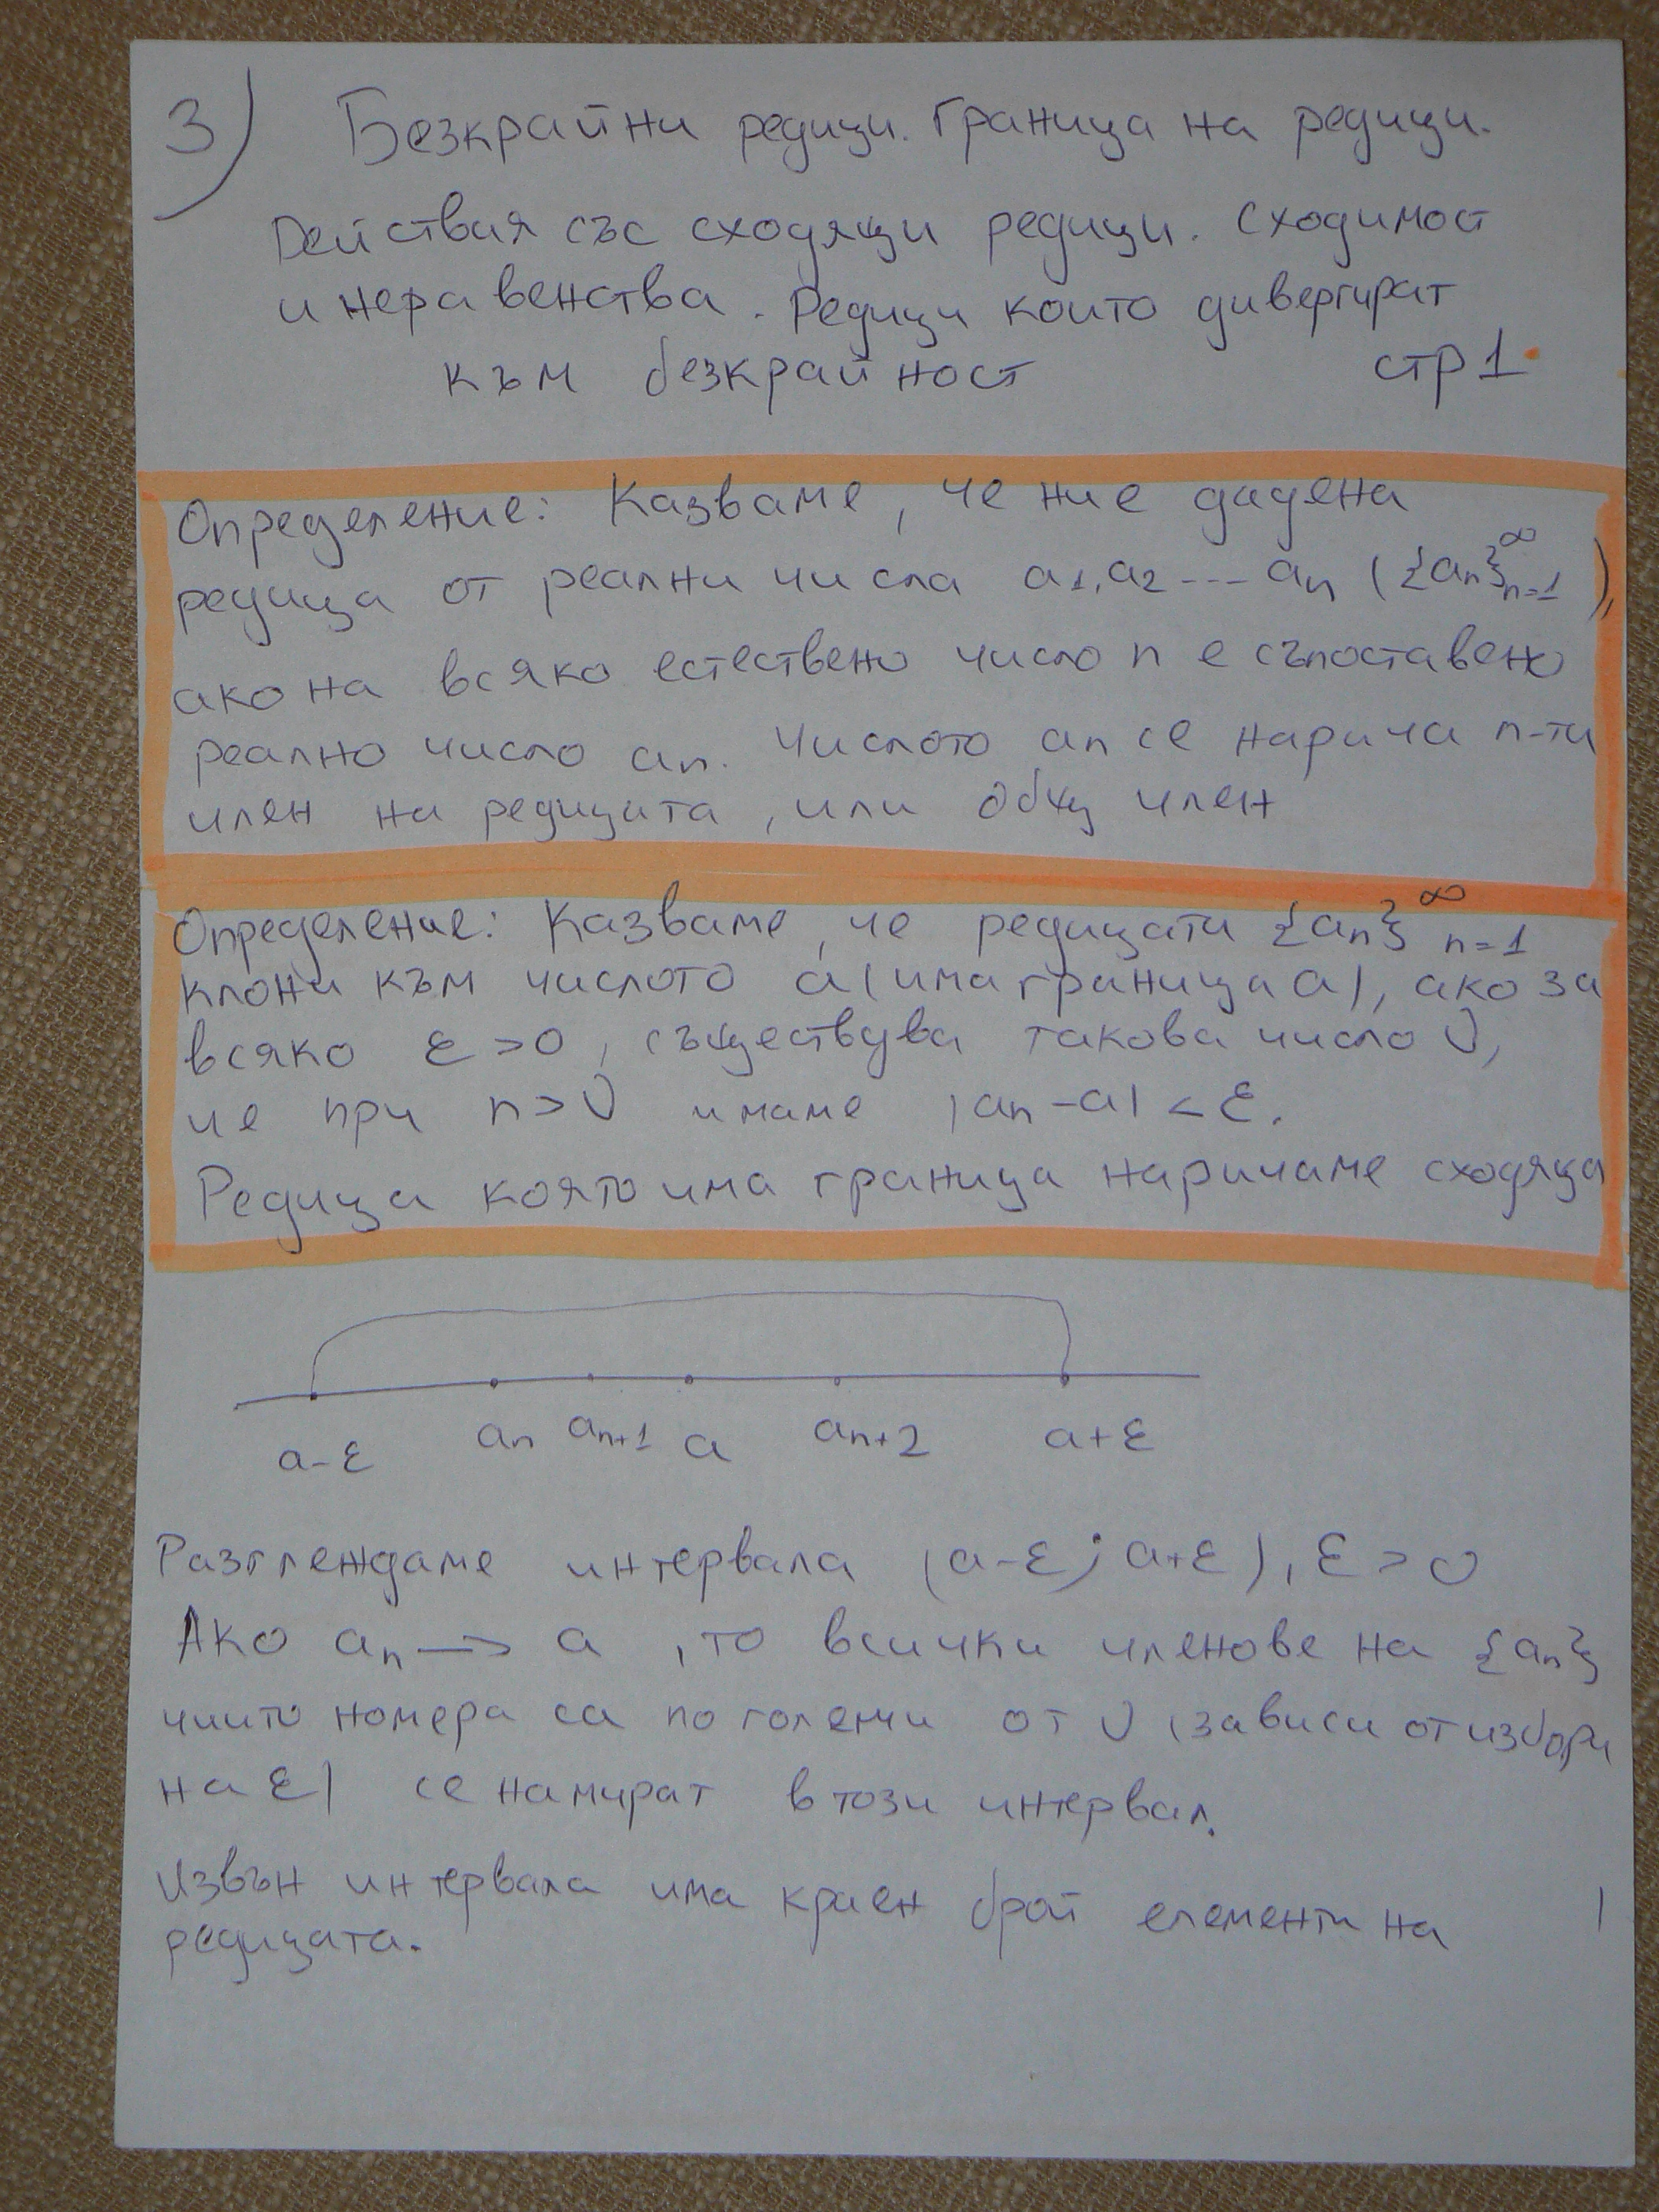 3) Безкрайни редици. Граница на редици.
Действия със сходящи редици. Сходимост
и неравенства. Редици които дивергират
към безкрайност стр 1
Определение: Казваме, че ние дадена
редица от реални числа a1, a2 --- an ({an}∞n=1),
ако на всяко естествено число n е съпоставено
реално число an. Числото an се нарича n-ти
член на редицата, или общ член
Определение: Казваме, че редицата {an}∞n=1
клони към числото a (има граница a), ако за
всяко ε>0, съществува такова число ν,
че при n>ν имаме |an-a|<ε.
Редица която има граница наричаме сходяща
a-ε an an+1 a an+2 a+ε
Разглеждаме интервала (a-ε; a+ε), ε>0
Ако an → a, то всички членове на {an}
чиито номера са по големи от ν (зависи от избора
на ε) се намират в този интервал.
Извън интервала има краен брой елементи на
редицата.